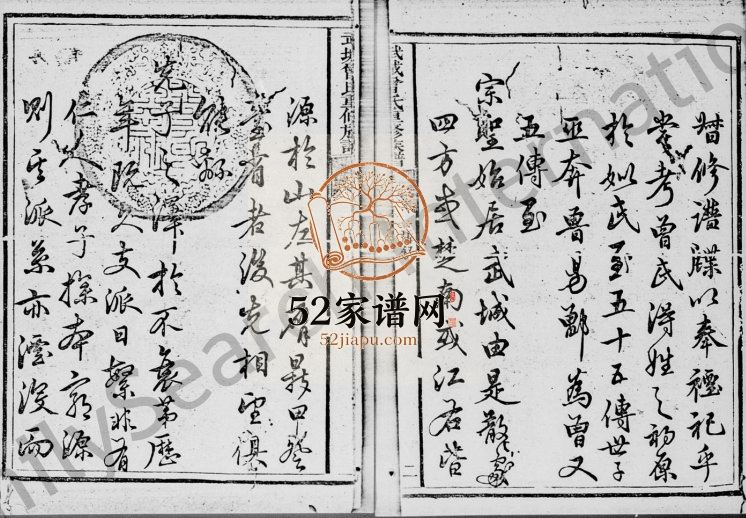 督修譜牒以奉禋祀乎
嘗考曾氏得姓之初原
於姒氏至五十五傳世子
巫奔魯易鄫為曾又
五傳至
宗聖始居武城由是散處
四方或楚南或江右皆
二
武城曾氏重修族譜
武城曾氏重修族譜
源於山左其科甲
者後先相望俱
能
先子之澤於不衰第歷
年既久支派日繁非有
仁人孝子探本窮源
則宗派系亦湮沒而
52家谱网
52jiapu.com
ilySearch International